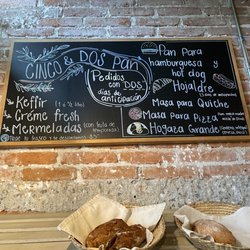 CINCO & DOS PAN
Pedidos con DOS
días de
anticipación
Keffir (1 o ½ lt)
Créme fresh
Mermeladas (con fruta de
temporada)
Pan Para
hamburguesa y
hot dog
Hojaldre
Masa para Quiche
Masa para Pizza
Hogaza Grande